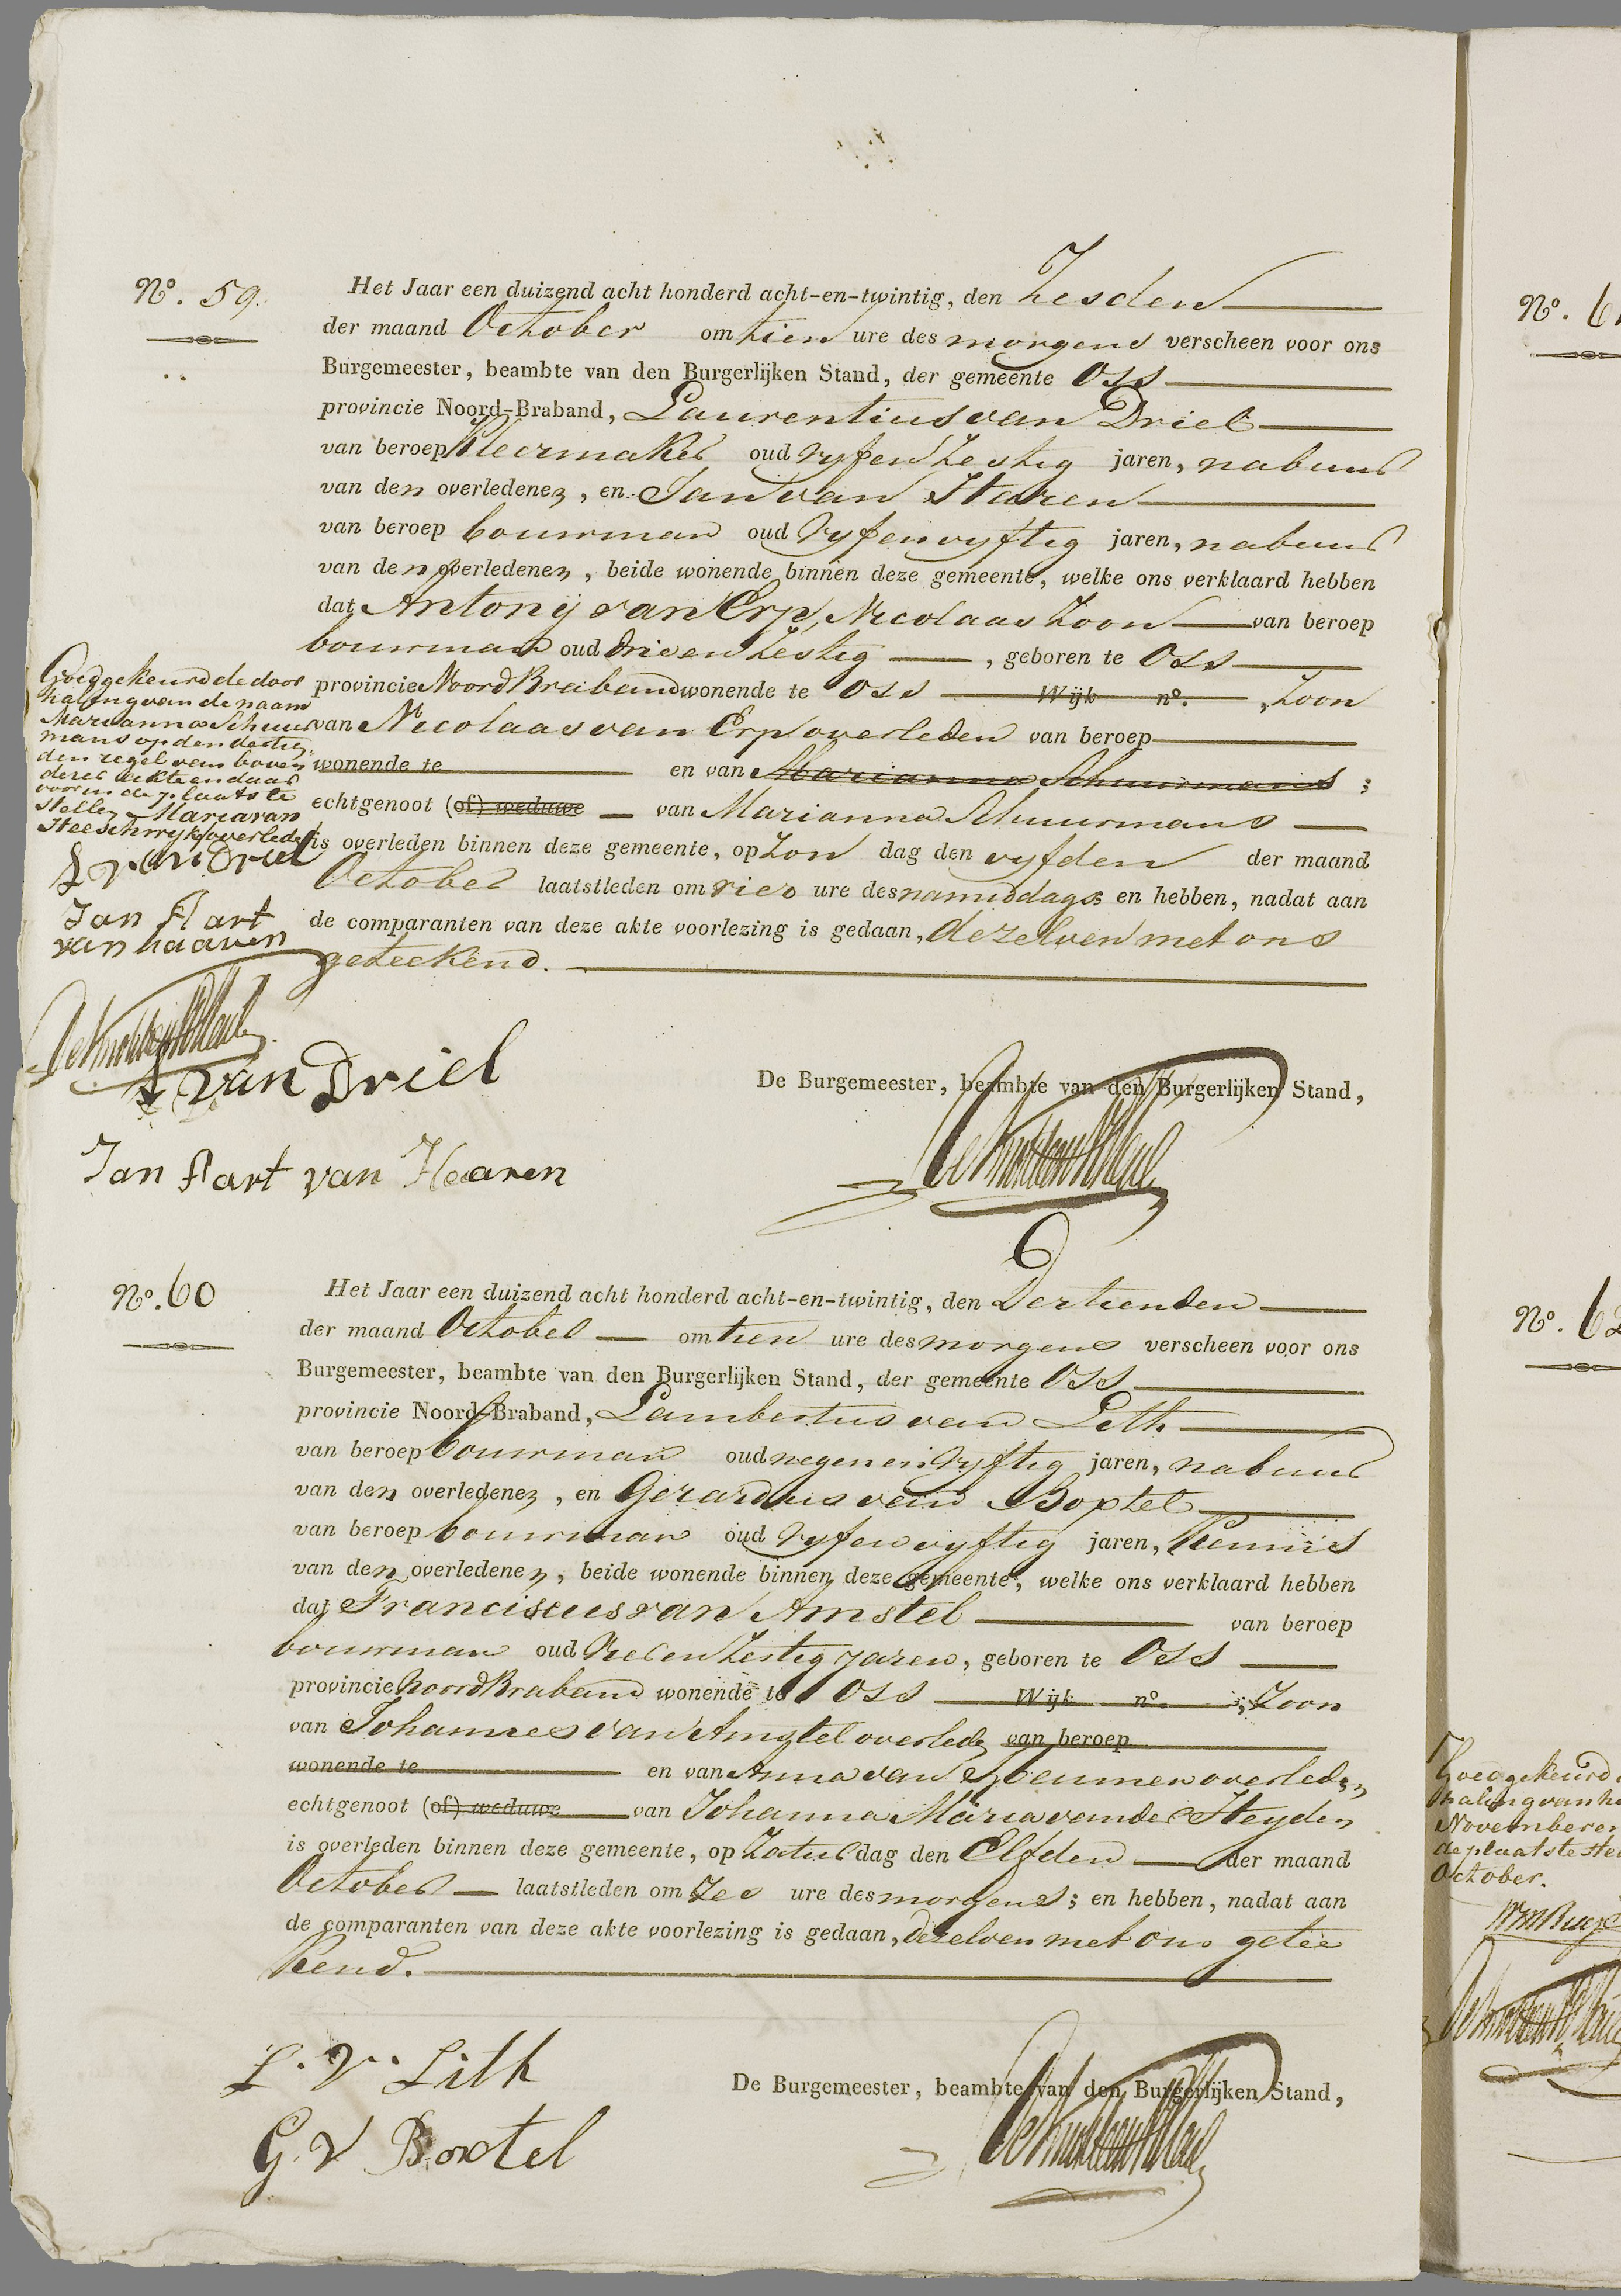 No. 59.
Het Jaar een duizend acht honderd acht-en-twintig, den Zesden
der maand October om tien ure des morgens verscheen voor ons
Burgemeester, beambte van den Burgerlijken Stand, der gemeente Oss
provincie Noord-Braband, Laurentius van Driel
van beroep Kleermaker oud vyfenzestig jaren, nabuur
van den overledenen, en Jan van Haren
van beroep bouwman oud vyfenvyftig jaren, nabuur
van den overledenen, beide wonende binnen deze gemeente, welke ons verklaard hebben
dat Antonij van Erp, Nicolaas Zoon van beroep
bouwman oud drieenzestig, geboren te Oss
provincie Noord Braband wonende te Oss Wijk no. , Zoon
van Nicolaas van Erp overleden van beroep
wonende te en van Marianna Schuurmans ;
echtgenoot (of) weduwe van Marianna Schuurmans
is overleden binnen deze gemeente, op Zondag den vyfden der maand
October laatstleden om vier ure des namiddags en hebben, nadat aan
de comparanten van deze akte voorlezing is gedaan, dezelven met ons
geteekend.
Goedgekeurd de door
haling van de naam
Marianna Schuur
mans op den dertien
den regel van boven
dezer akte en daar
voor in de plaats te
stellen Maria van
Heeschwyk overleden
L van Driel
Jan Aart
van haaren
L van Driel
De Burgemeester, beambte van den Burgerlijken Stand,
Jan Aart van Haaren
No. 60
Het Jaar een duizend acht honderd acht-en-twintig, den Dertienden
der maand October om tien ure des morgens verscheen voor ons
Burgemeester, beambte van den Burgerlijken Stand, der gemeente Oss
provincie Noord-Braband, Lambertus van Lith
van beroep bouwman oud negenenvyftig jaren, nabuur
van den overledenen, en Gerardus van Boxtel
van beroep bouwman oud vyfenvyftig jaren, Kennis
van den overledenen, beide wonende binnen deze gemeente, welke ons verklaard hebben
dat Franciscus van Amstel van beroep
bouwman oud vierenzestig jaren, geboren te Oss
provincie Noord Braband wonende te Oss Wijk no. , Zoon
van Johannes van Amstel overleden van beroep
wonende te en van Anna van overleden
echtgenoot (of) weduwe van Johanna Maria van der Heyden
is overleden binnen deze gemeente, op Zaturdag den Elfden der maand
October laatstleden om Zes ure des morgens; en hebben, nadat aan
de comparanten van deze akte voorlezing is gedaan, dezelven met ons getee
kend.
L. v. Lith
De Burgemeester, beambte van den Burgerlijken Stand,
G. V Boxtel
No. 6
No. 6
Goedgekeurd
haling van
November
de plaats te
October.